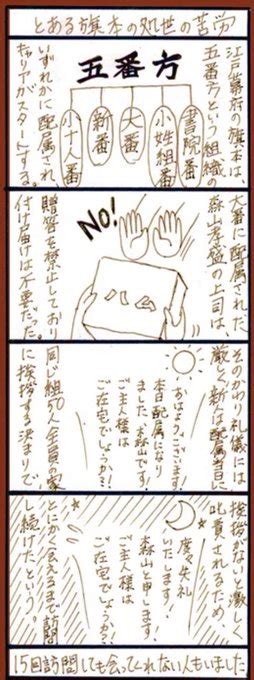 とある旗本の処世の苦労
江戸幕府の旗本は、
五番方という組織の
五番方
書院番
小姓組番
大番
新番
小十人番
いずれかに配属され、
キャリアがスタートする。
大番に配属された、
森山孝盛の上司は、
NO!
ハム
贈答を禁止しており
付け届けは不要だった。
そのかわり礼儀には
厳しく新人は配属当日に
おはようございます!
本日配属になり
ました、森山です!
ご主人様は
ご在宅でしょうか?
同じ組50人全員の家
に挨拶する決まりで
挨拶がないと激しく
叱責されるため、
度々失礼
いたします!
森山と申します、
ご主人様は
ご在宅でしょうか?
とにかく会えるまで訪問
し続けたという。
15回訪問しても会ってくれない人もいました